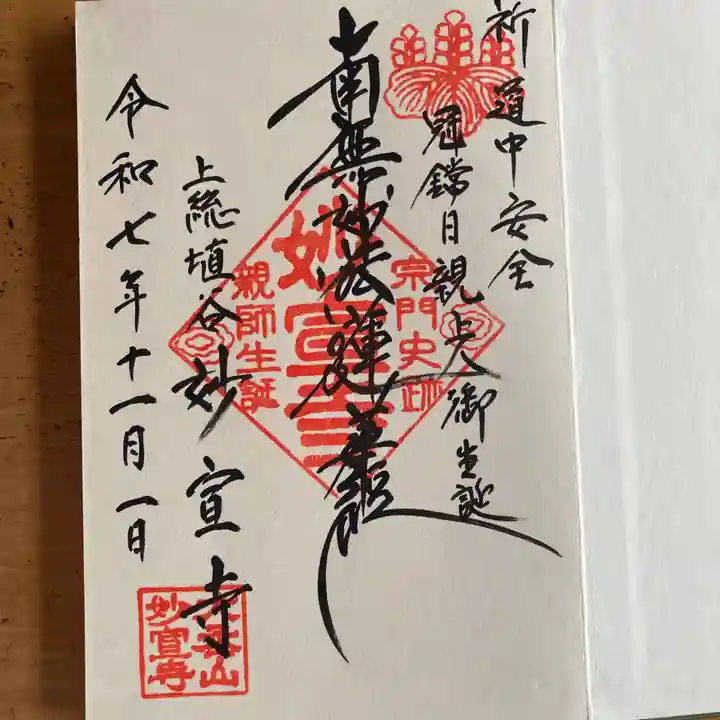 祈道中安全
冠鐺日親上人御生誕
南無妙法蓮華経
宗門史跡
妙宣寺
親師生誕
上総埴谷妙宣寺
令和七年十一月一日
山
妙宣寺